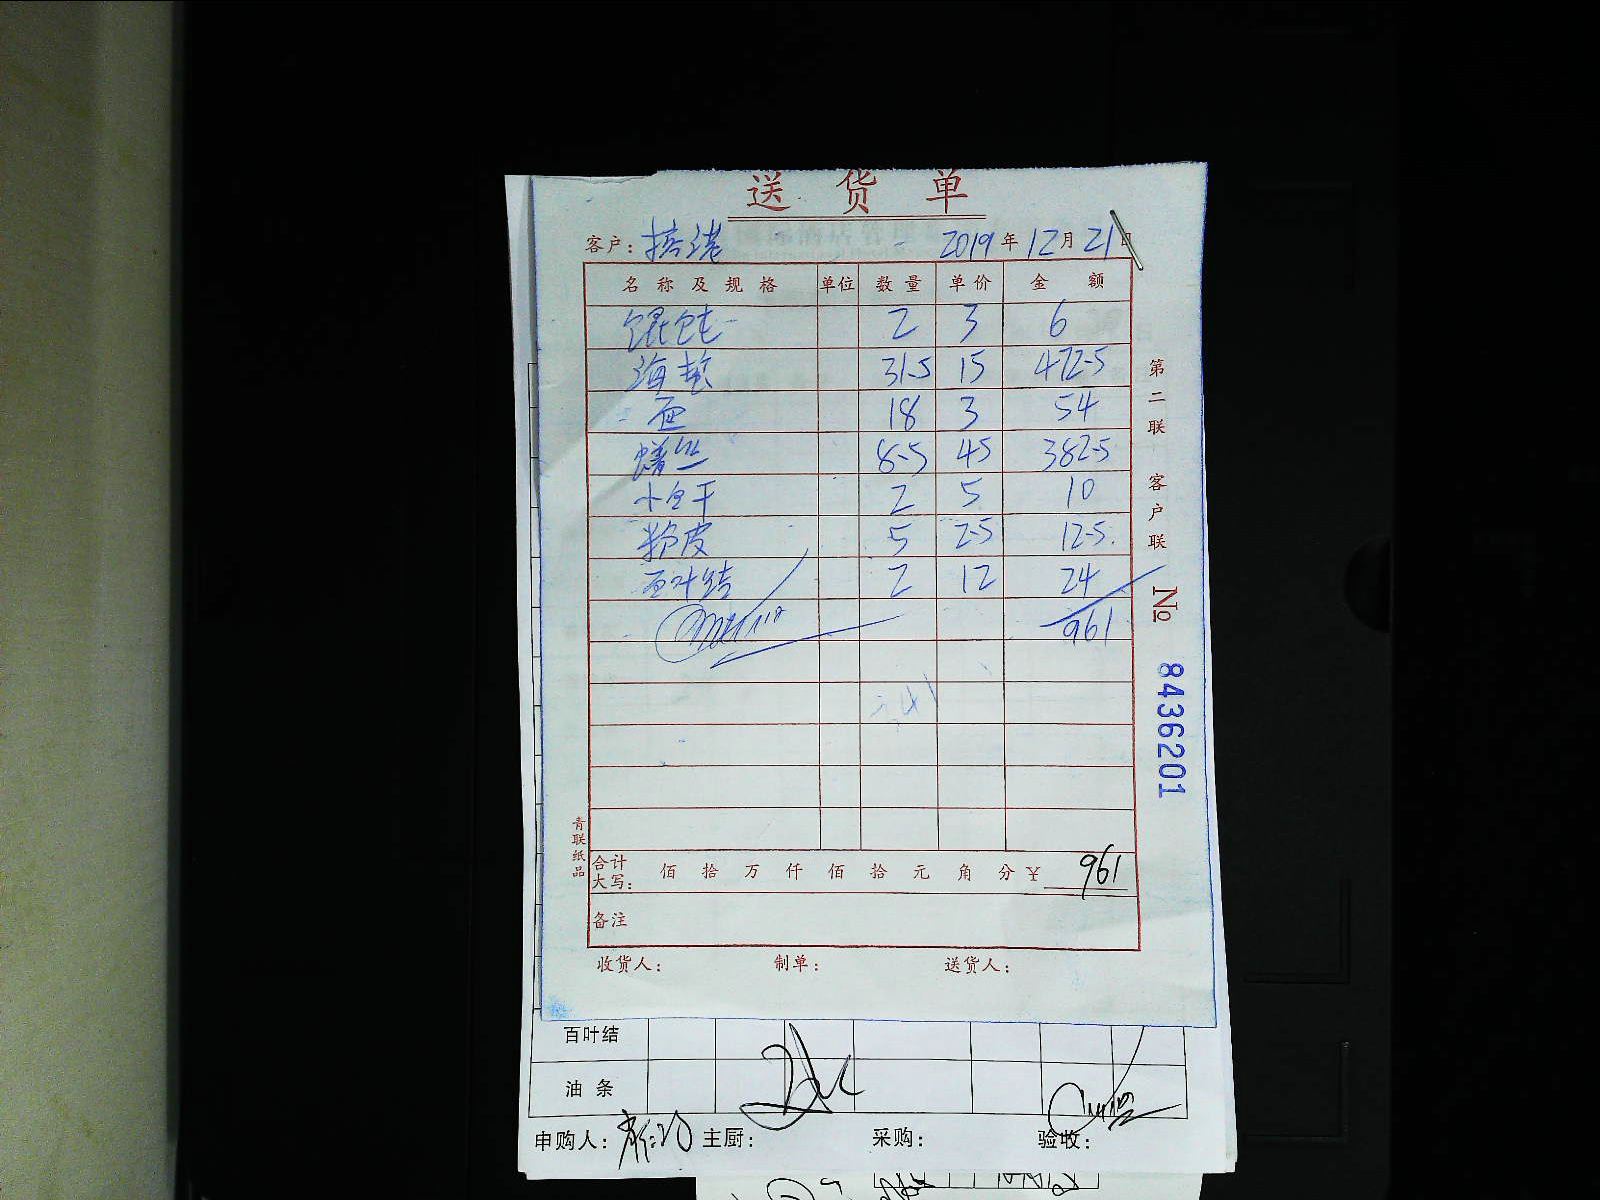 送货单
客户: 2019年12月21日
名称及规格 单位 数量 单价 金额
馄饨 2 3 6
海蜇 31.5 15 472.5
面 18 3 54
鳝丝 8.5 45 382.5
小白干 2 5 10
粉皮 5 2.5 12.5
百叶结 2 12 24
961
第二联 客户联
№ 8436201
青联纸品
合计大写: 佰拾万仟佰拾元角分 ¥ 961
备注
收货人: 制单: 送货人:
百叶结
油条
申购人: 主厨: 采购: 验收: